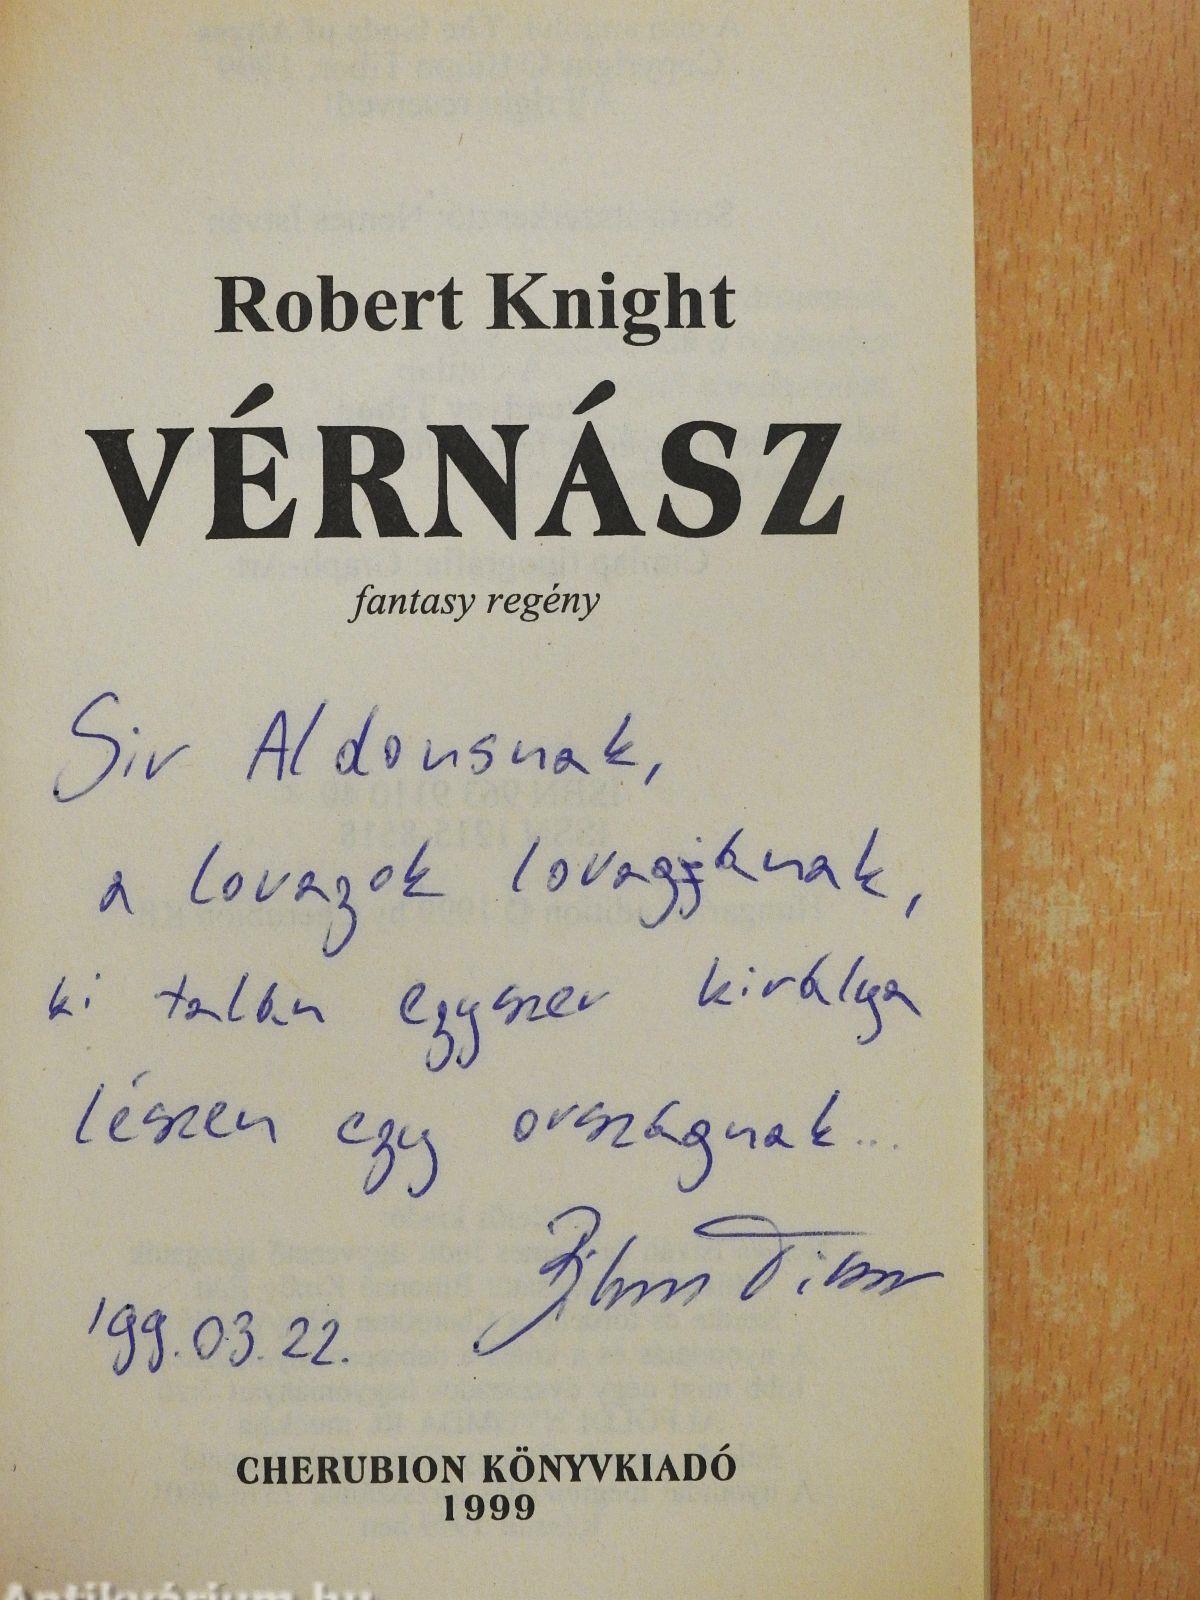 Robert Knight
VÉRNÁSZ
fantasy regény
Sir Aldousnak,
a lovagok lovagjának,
ki talán egyszer királya
lészen egy országnak...
Bihon Tibor
'99.03.22.
CHERUBION KÖNYVKIADÓ
1999
Antikvárium.hu